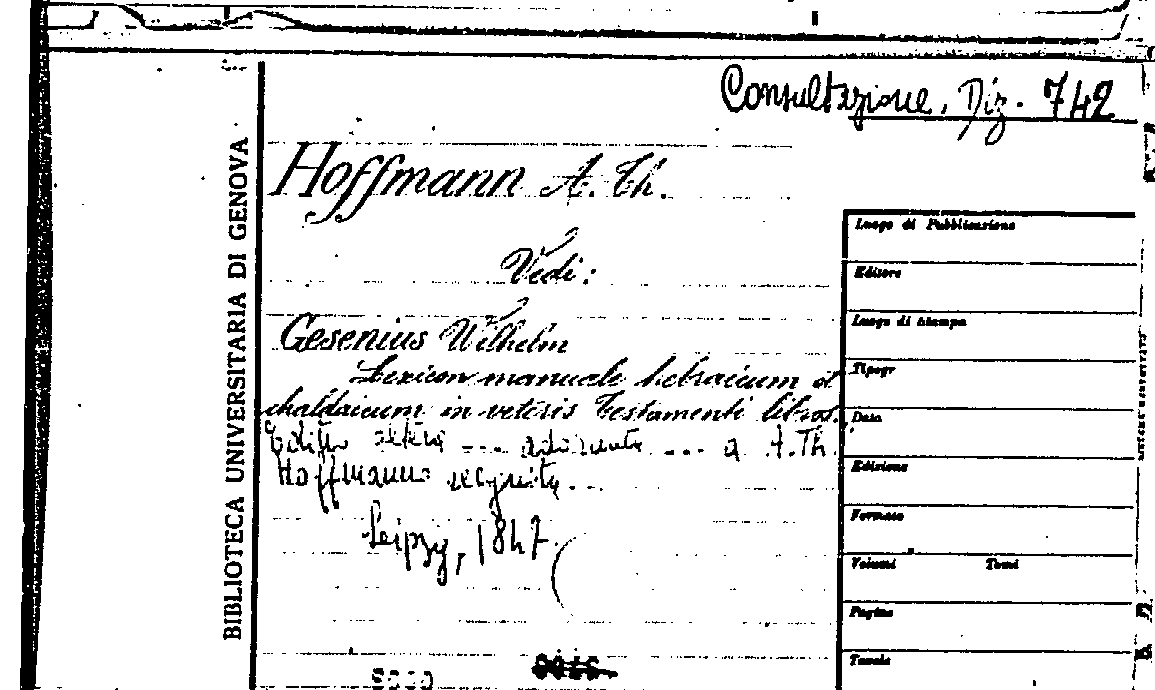 Consultazione, Diz. 742
BIBLIOTECA UNIVERSITARIA DI GENOVA
Hoffmann A. Th.
Vedi:
Gesenius Wilhelm
Lexicon manuale hebraicum et
chaldaicum in veteris Testamenti libros.
Editio altera ... a A. Th.
Hoffmanno recognita...
Leipzg, 1847.
Luogo di Pubblicazione
Editore
Luogo di stampa
Tipogr
Data
Edizione
Formato
Volumi Tomi
Pagine
Tavole